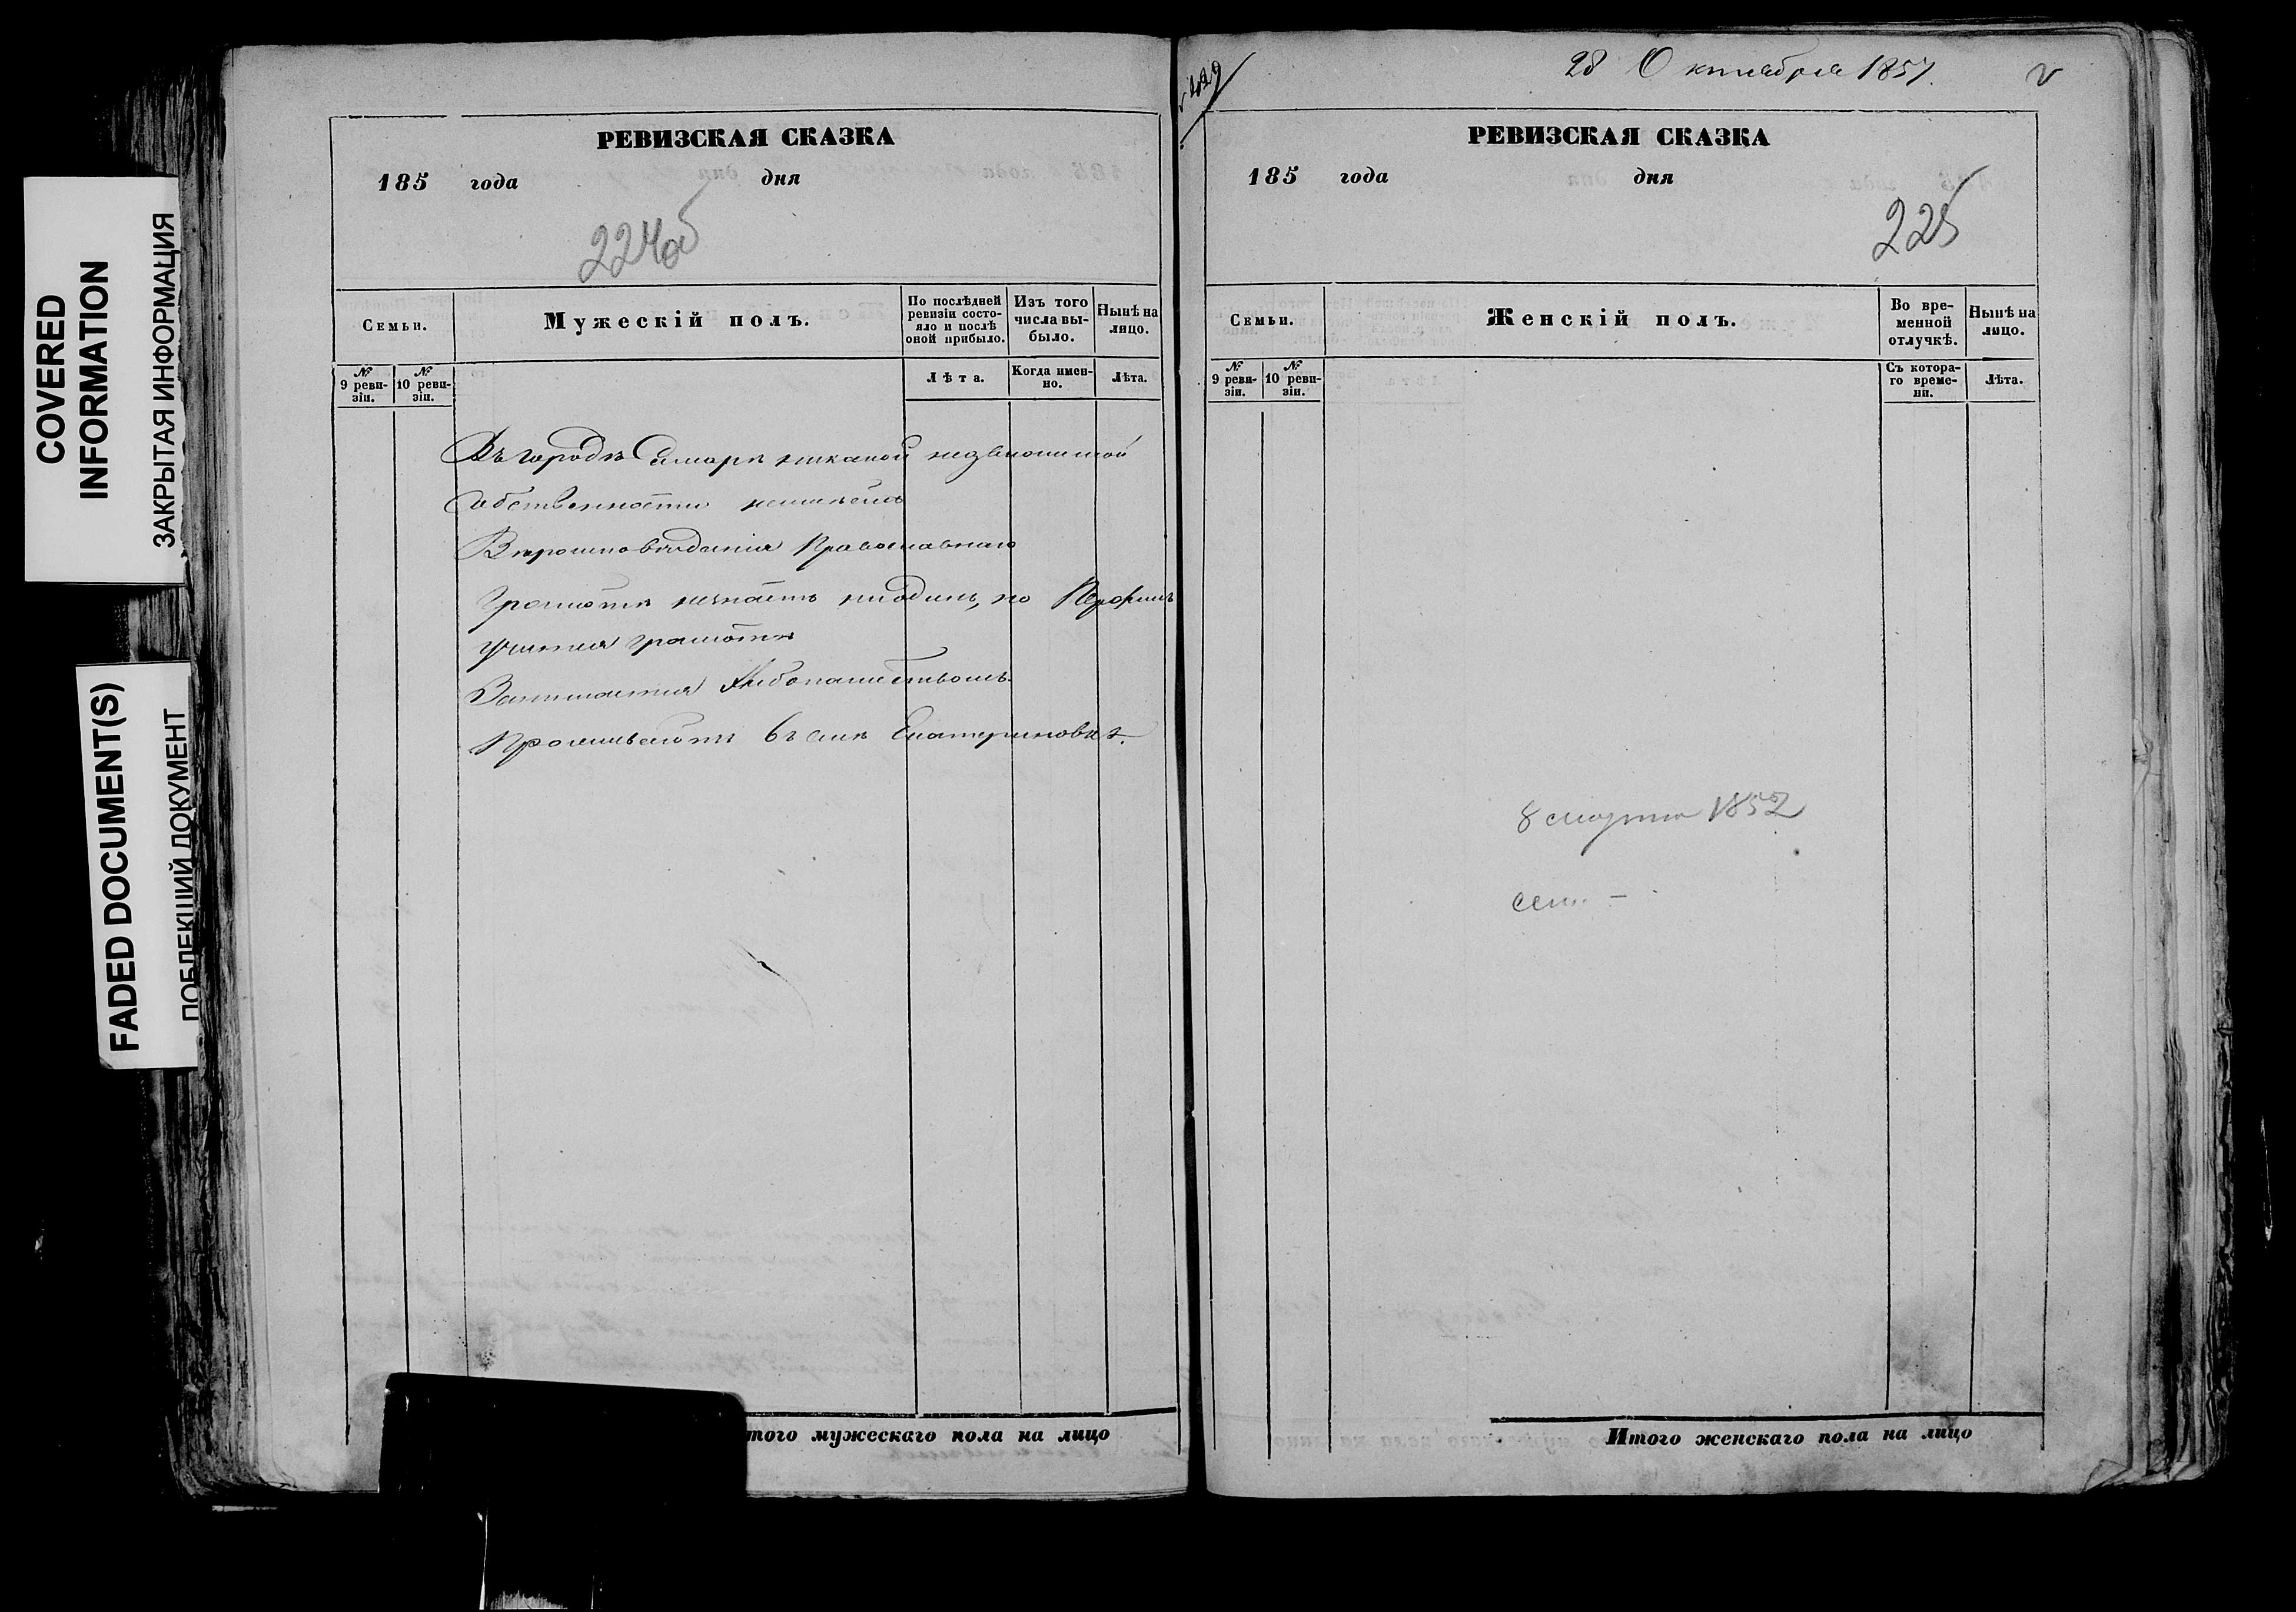 COVERED INFORMATION
ЗАКРЫТАЯ ИНФОРМАЦИЯ
FADED DOCUMENT(S)
ПОБЛЕКШИЙ ДОКУМЕНТ
РЕВИЗСКАЯ СКАЗКА
185 года дня
224об
Семьи.
Мужескій полъ.
По послѣдней ревизіи состояло и послѣ оной прибыло.
Изъ того числа выбыло.
Нынѣ на лицо.
№ 9 ревизіи.
№ 10 ревизіи.
Лѣта.
Когда именно.
Лѣта.
Въ городѣ Самарѣ никакой недвижимой
собственности неимѣетъ
Вѣроисповѣданія Православнаго
Грамотѣ незнаетъ ниодинъ, но
учится грамотѣ
Занимается хлѣбопашествомъ.
Проживаютъ въ селѣ Екатериновкѣ.
того мужескаго пола на лицо
28 Октября 1857.
РЕВИЗСКАЯ СКАЗКА
185 года дня
225
Семьи.
Женскій полъ.
Во временной отлучкѣ.
Нынѣ на лицо.
№ 9 ревизіи.
№ 10 ревизіи.
Съ котораго времени.
Лѣта.
8 марта 1852
Итого женскаго пола на лицо